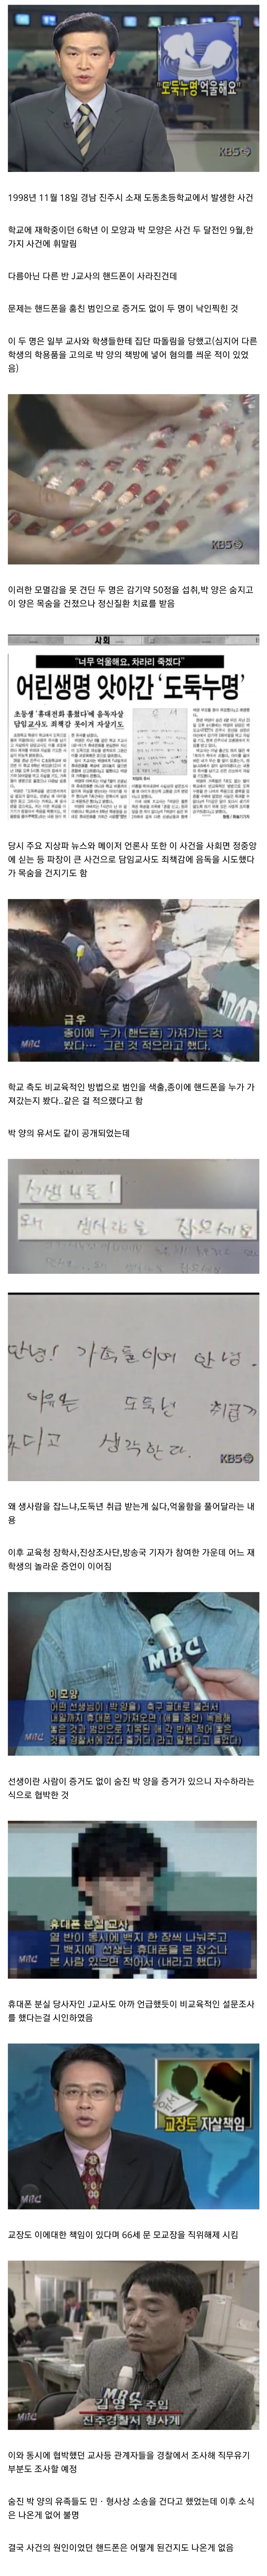 "도둑누명 억울해요"
KBS
1998년 11월 18일 경남 진주시 소재 도동초등학교에서 발생한 사건
학교에 재학중이던 6학년 이 모양과 박 모양은 사건 두 달전인 9월,한
가지 사건에 휘말림
다름아닌 다른 반 J교사의 핸드폰이 사라진건데
문제는 핸드폰을 훔친 범인으로 증거도 없이 두 명이 낙인찍힌 것
이 두 명은 일부 교사와 학생들한테 집단 따돌림을 당했고(심지어 다른
학생의 학용품을 고의로 박 양의 책방에 넣어 혐의를 씌운 적이 있었
음)
KBS
이러한 모멸감을 못 견딘 두 명은 감기약 50정을 섭취,박 양은 숨지고
이 양은 목숨을 건졌으나 정신질환 치료를 받음
사회
"너무 억울해요, 차라리 죽겠다"
어린생명 앗아간 '도둑누명'
초등생 '휴대전화 훔쳤다'에 음독자살
담임교사도 죄책감 못이겨 자살기도
당시 주요 지상파 뉴스와 메이저 언론사 또한 이 사건을 사회면 정중앙
에 싣는 등 파장이 큰 사건으로 담임교사도 죄책감에 음독을 시도했다
가 목숨을 건지기도 함
급우
종이에 누가 (핸드폰) 가져가는 것
봤다… 그런 것 적으라고 했다.
MBC
학교 측도 비교육적인 방법으로 범인을 색출,종이에 핸드폰을 누가 가
져갔는지 봤다..같은 걸 적으랬다고 함
박 양의 유서도 같이 공개되었는데
선생님들!
왜 생사람을 잡으세요
안녕! 가족들이여 안녕.
이유는 도둑년 취급
다고 생각한다.
KBS
왜 생사람을 잡느냐,도둑년 취급 받는게 싫다,억울함을 풀어달라는 내
용
이후 교육청 장학사,진상조사단,방송국 기자가 참여한 가운데 어느 재
학생의 놀라운 증언이 이어짐
MBC
이모양
어떤 선생님이 (박 양을) 축구 골대로 불러서
내일까지 휴대폰 안가져오면 (애들 증언) 녹음해
놓은 것과 범인으로 지목된 애 각 반에 적어 놓은
것을 경찰서에 갖다 줄거다 (라고 말했다고 들었다)
선생이란 사람이 증거도 없이 숨진 박 양을 증거가 있으니 자수하라는
식으로 협박한 것
휴대폰 분실 교사
열 반이 동시에 백지 한 장씩 나눠주고
그 백지에 선생님 휴대폰을 본 장소나
본 사람 있으면 적어서 (내라고 했다)
MBC
휴대폰 분실 당사자인 J교사도 아까 언급했듯이 비교육적인 설문조사
를 했다는걸 시인하였음
교장도 자살책임
MBC
교장도 이에대한 책임이 있다며 66세 문 모교장을 직위해제 시킴
김영수 주임
진주경찰서 형사계
MBC
이와 동시에 협박했던 교사등 관계자들을 경찰에서 조사해 직무유기
부분도 조사할 예정
숨진 박 양의 유족들도 민ㆍ형사상 소송을 건다고 했었는데 이후 소식
은 나온게 없어 불명
결국 사건의 원인이었던 핸드폰은 어떻게 된건지도 나온게 없음